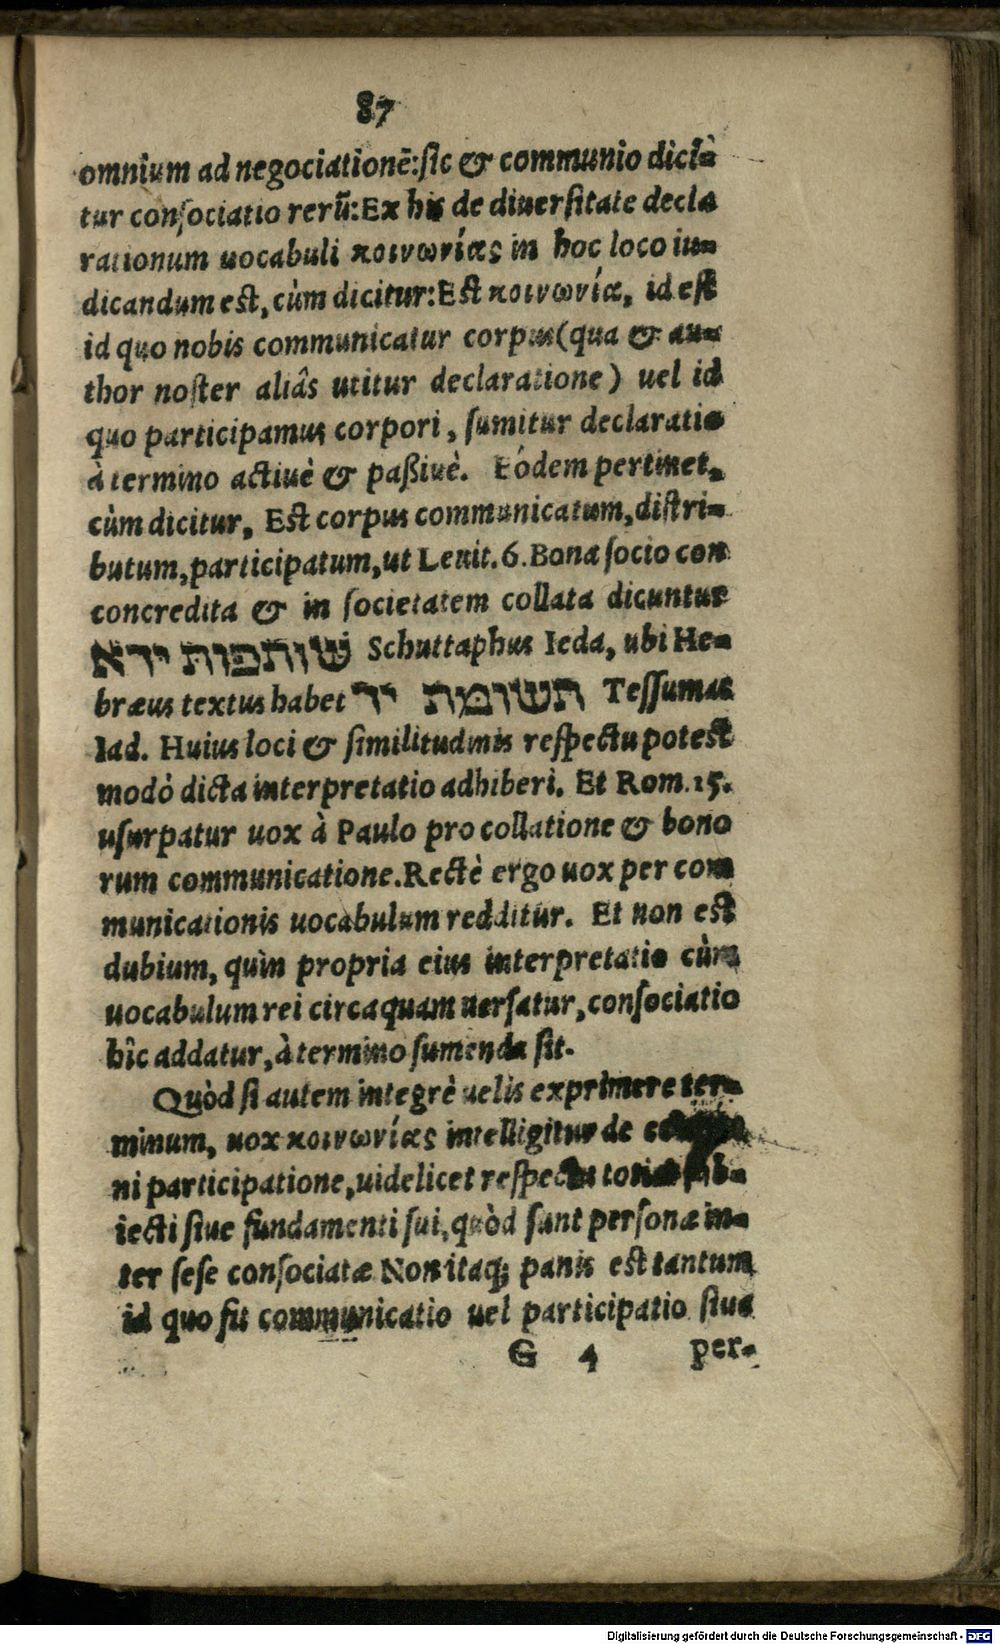 87
omnium ad negociationē:sic & communio dici-
tur consociatio rerū:Ex his de diuersitate decla
rationum uocabuli κοινωνίας in hoc loco iu-
dicandum est, cùm dicitur:Est κοινωνία, id est
id quo nobis communicatur corpus(qua & au-
thor noster aliâs utitur declaratione) uel id
quo participamus corpori, sumitur declaratio
à termino actiuè & paßiuè. Eódem pertinet,
cùm dicitur, Est corpus communicatum, distri-
butum, participatum, ut Leuit. 6. Bona socio con
concredita & in societatem collata dicuntur
שותפות ידא Schuttaphus Ieda, ubi He-
bræus textus habet תשומת יד Tessumat
Iad. Huius loci & similitudinis respectu potest
modò dicta interpretatio adhiberi. Et Rom. 15.
usurpatur uox à Paulo pro collatione & bono
rum communicatione. Rectè ergo uox per com
municationis uocabulum redditur. Et non est
dubium, quin propria eius interpretatio cùm
uocabulum rei circa quam uersatur, consociatio
hîc addatur, à termino sumenda sit.
Quòd si autem integrè uelis exprimere ter-
minum, uox κοινωνίας intelligitur de
ni participatione, uidelicet respectu
iecti siue fundamenti sui, quòd sunt personæ in-
ter sese consociatæ Non itaq; panis est tantum
id quo fit communicatio uel participatio siue
G 4 per-
Digitalisierung gefördert durch die Deutsche Forschungsgemeinschaft - DFG